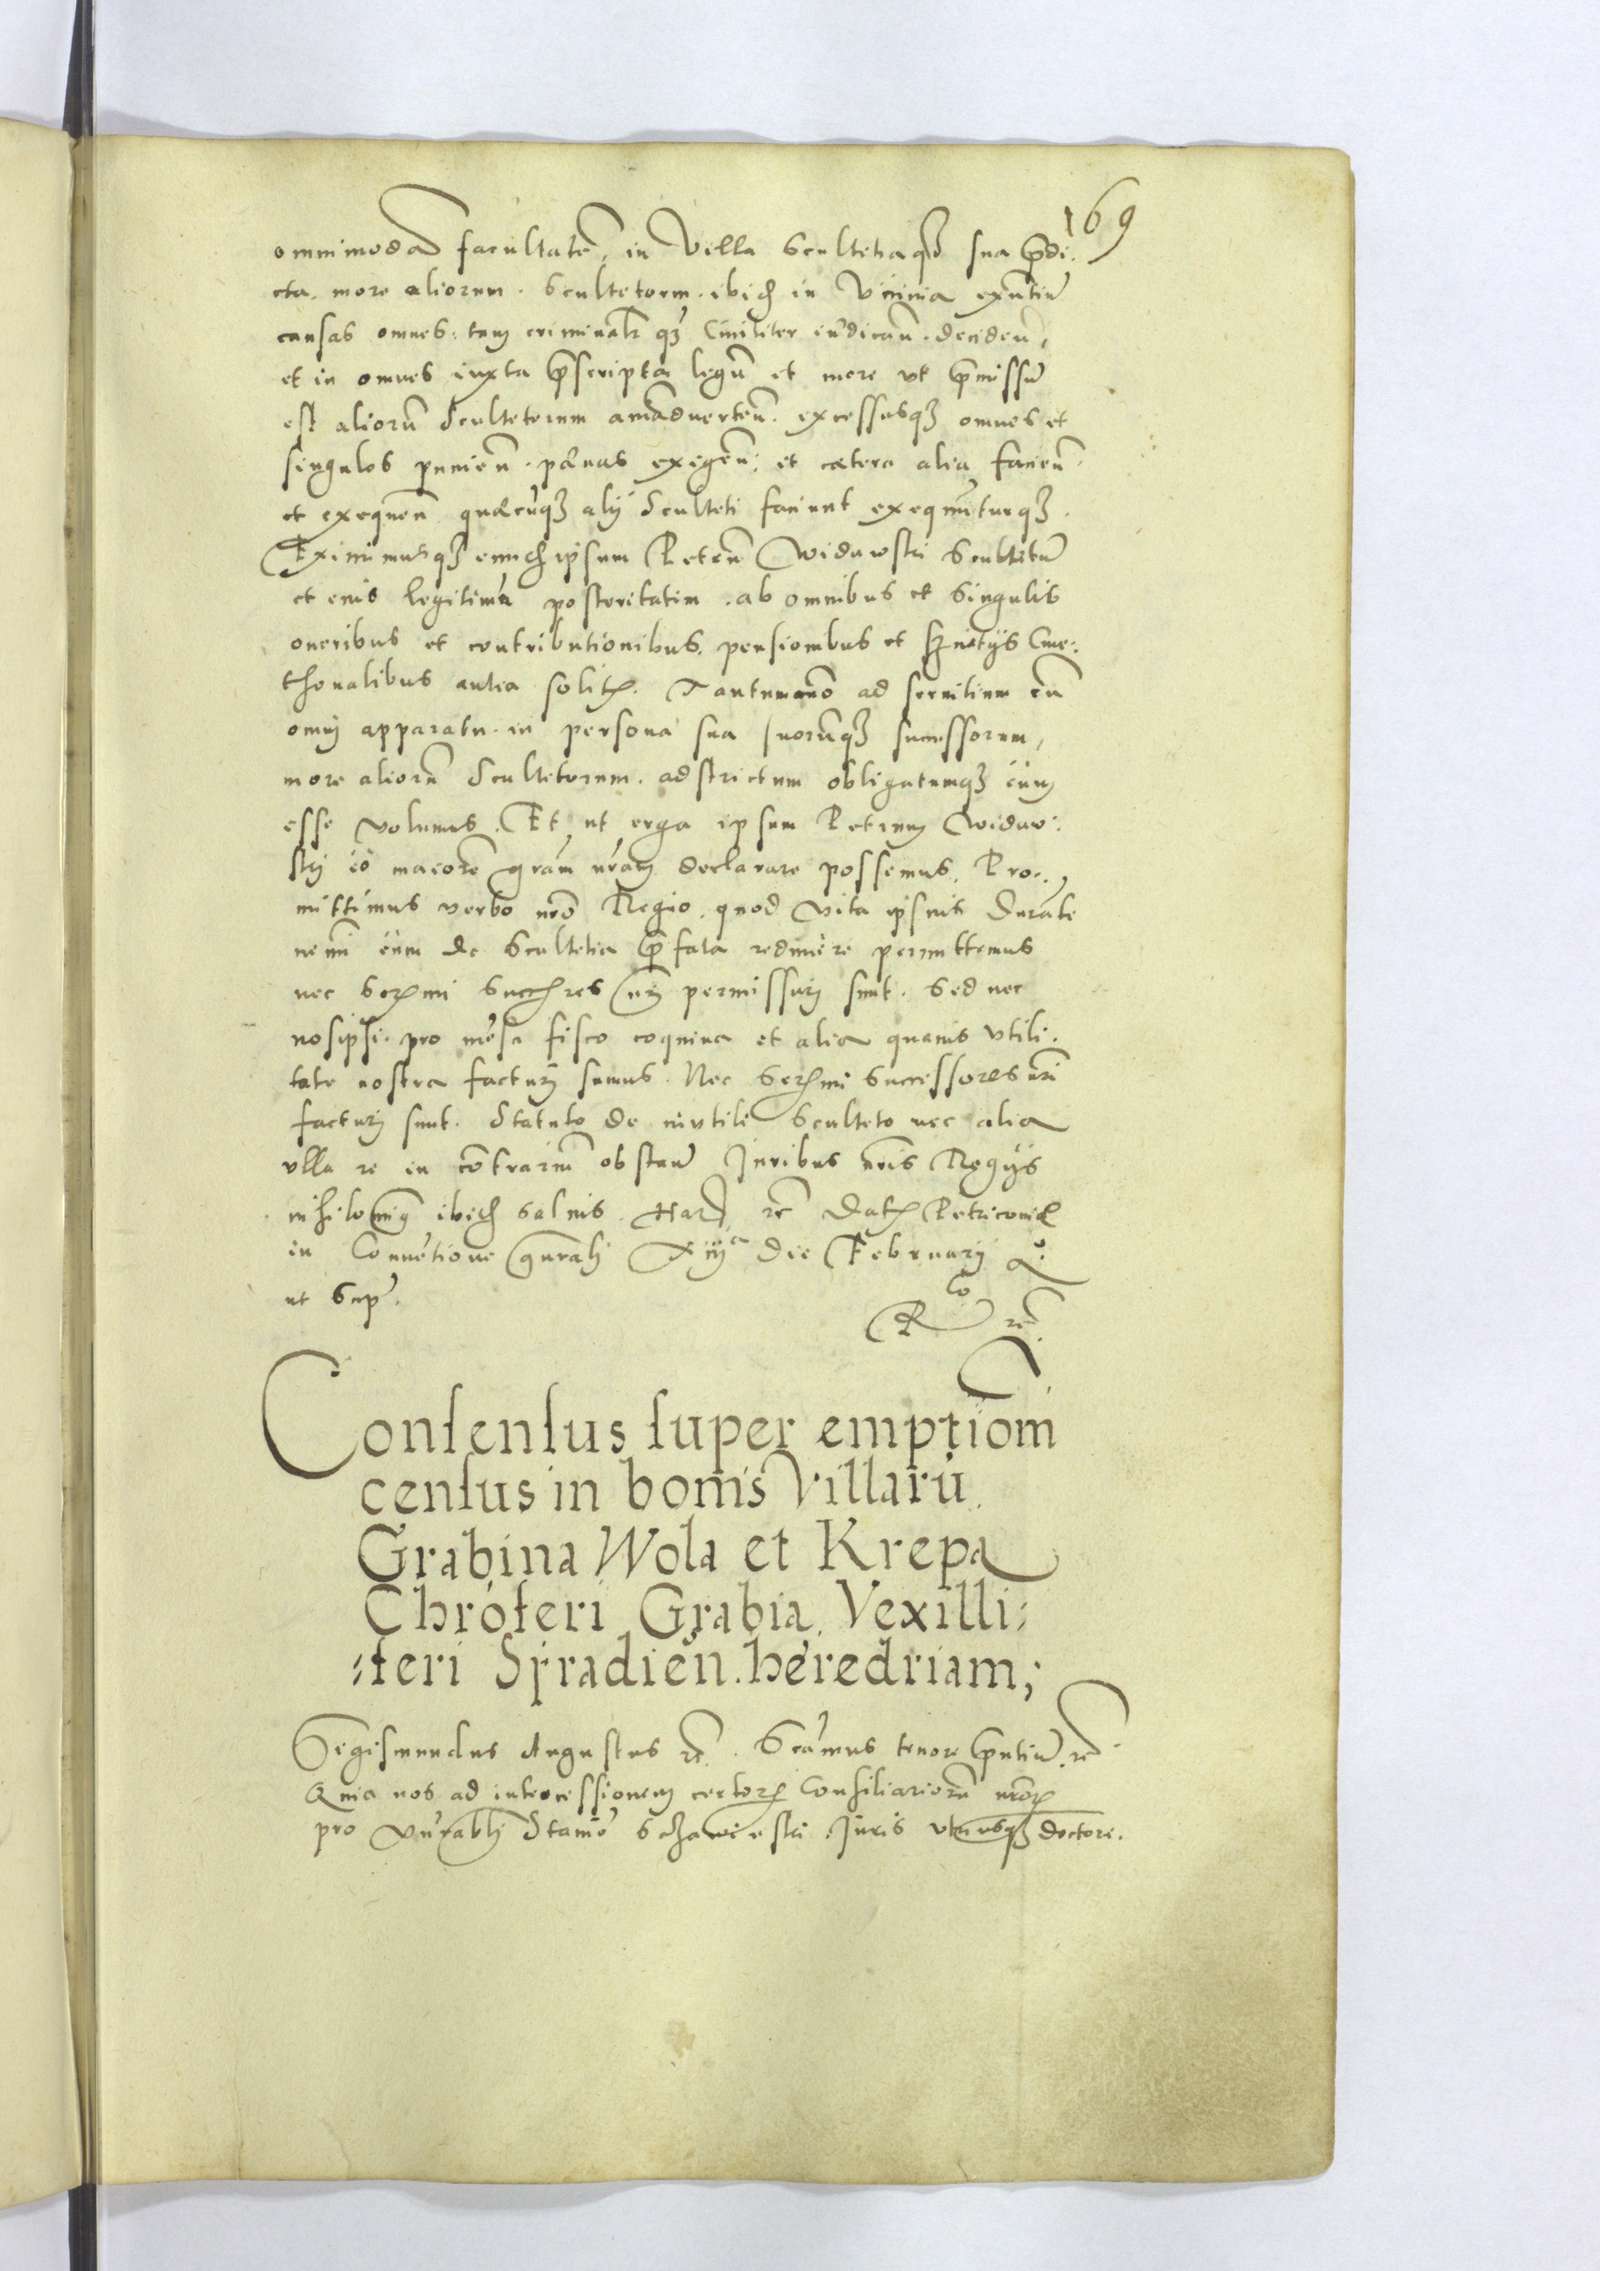 169
omnimodā facultatē, in Villa Scultetiaqꝫ sua p̄di.
cta. more aliorum. Scultetorm. ibid in Vicinia exn̄tiū
causas omnes: tam criminalr̄ qꝫ Civiliter iudicān̄. deciden̄,
et in omnes iuxta p̄scripta legū et more ut p̄missū
est aliorū Scultetorum aīmadverten̄. excessusqꝫ omnes et
singulos punien̄. pœnas exigen̄. et cætera alia facien̄.
et exequen̄ quæcūqꝫ alij Sculteti faciunt exequūturqꝫ.
Eximimusqꝫ eundem ipsum Petrū Widawski Scultetū
et eius legitimā posteritatem. ab omnibus et singulis
oneribus et contributionibus, pensionibus et servitijs Cme:
thonalibus antea solitꝭ. Tantummo ad servitium cū
omni apparatu in persona sua suorūqꝫ successorum,
more aliorū Scultetorum. adstrictum obligatumqꝫ eum
esse volumus. Et ut erga ipsum Petrum Widaw:
ski eo maiorē gram̄ nram̄ declarare possemus. Pro:
mittimus verbo nr̄o Regio. quod vita ipsius durāte
nemini eum de Scultetia p̄fata redimere permittemus
nec Serꝫmi Succ̄res nr̄i permissuri sunt. Sed nec
nosipsi. pro mēsa fisco coquina et alia quavis utili.
tate nostra facturi sumus. Nec Serꝫmi Successores nr̄i
facturi sunt. Statuto de inutili Sculteto nec alia
ulla re in cōtrarium obstan̄ Juribus nr̄is Regijs
nihilominꝰ ibid salvis. Harꝫ rc̄ Datꝭ Petricoviæ
in Convētione gn̄rali Xiijᵃ die Februarij A.
ut Supr̄.
Rᶜᵒ rc̄.
Consensus super emptiom̄
census in bonis Villarū
Grabina Wola et Krepa
Chr̄oferi Grabia. Vexilli:
:feri Syradien̄. heredriam;
Sigismundus Augustus rc̄. Scām̄us tenore p̄ntiū. rc̄
Quia nos ad intercessionem certorꝫ Consiliariorū nr̄orꝫ
pro Vn̄rabli Stan̄o Juris utriusqꝫ doctore.